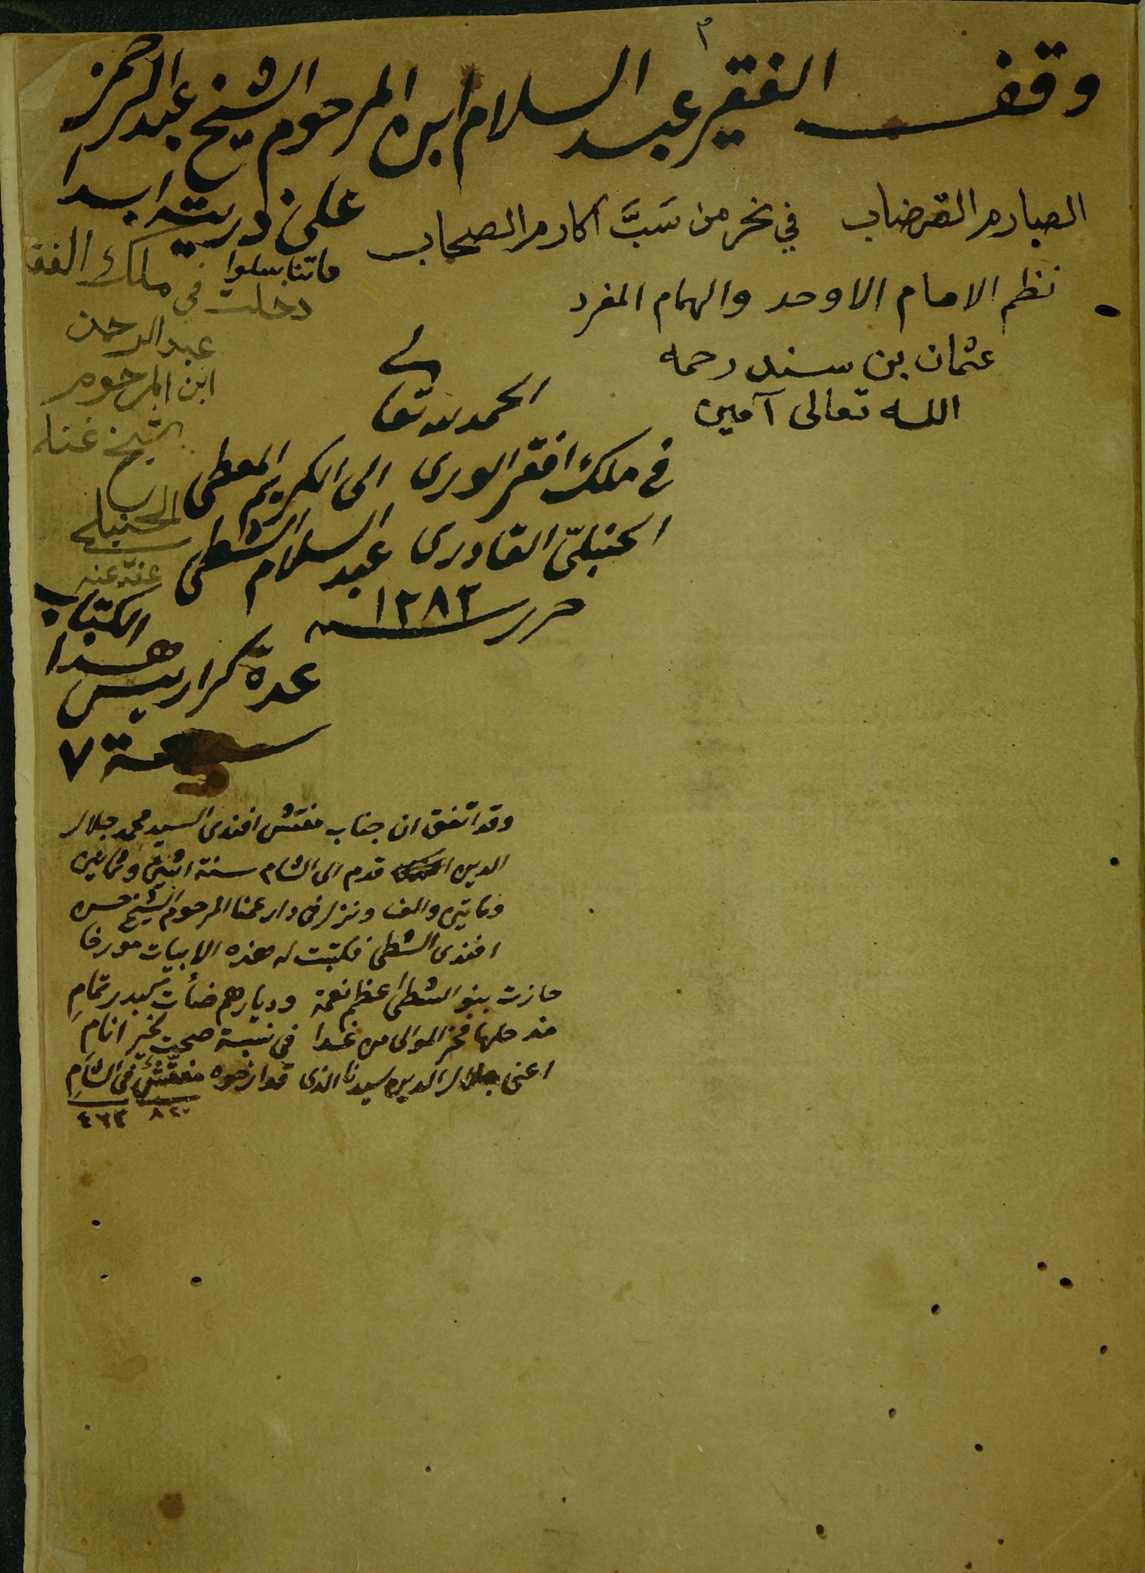 ٣
وقف الفقير عبد السلام ابن المرحوم الشيخ عبد الرحمن
على ذريته ابدا
ما تناسلوا
الصارم القرضاب في نحر من سَبَّ اكارم الصحاب
نظم الامام الاوحد والهمام المفرد
عثمان بن سند رحمه
الله تعالى آمين
دخلت في ملك الفقير
عبد الرحمن
ابن المرحوم
الشيخ
الحنبلي
عفي عنه
الحمد لله تعالى
في ملك افقر الورى الى الكريم المعطي
الحنبليّ القادرى عبد السلام الشطي
حرر سنة ١٢٨٢
عدة كراريس هذا الكتاب
سبعة ٧
وقد اتفق ان جناب مفتش افندى السيد محمد جلال
الدين قدم الى الشام سنة اثنين وثمانين
ومأتين والف ونزل في دار عمنا المرحوم الشيخ حسن
افندى الشطي فكتبت له هذه الابيات مورخا
حازت بنو الشطي اعظم نعمة وديارهم ضأت كبدر تمامِ
مذ حلها فخر الموالى من غدا في نسبة صحت لخير انامِ
اعني جلال الدين سيدنا الذى قد ارخوه مفتّش في الشامِ
٨٢٠ ٤٦٢